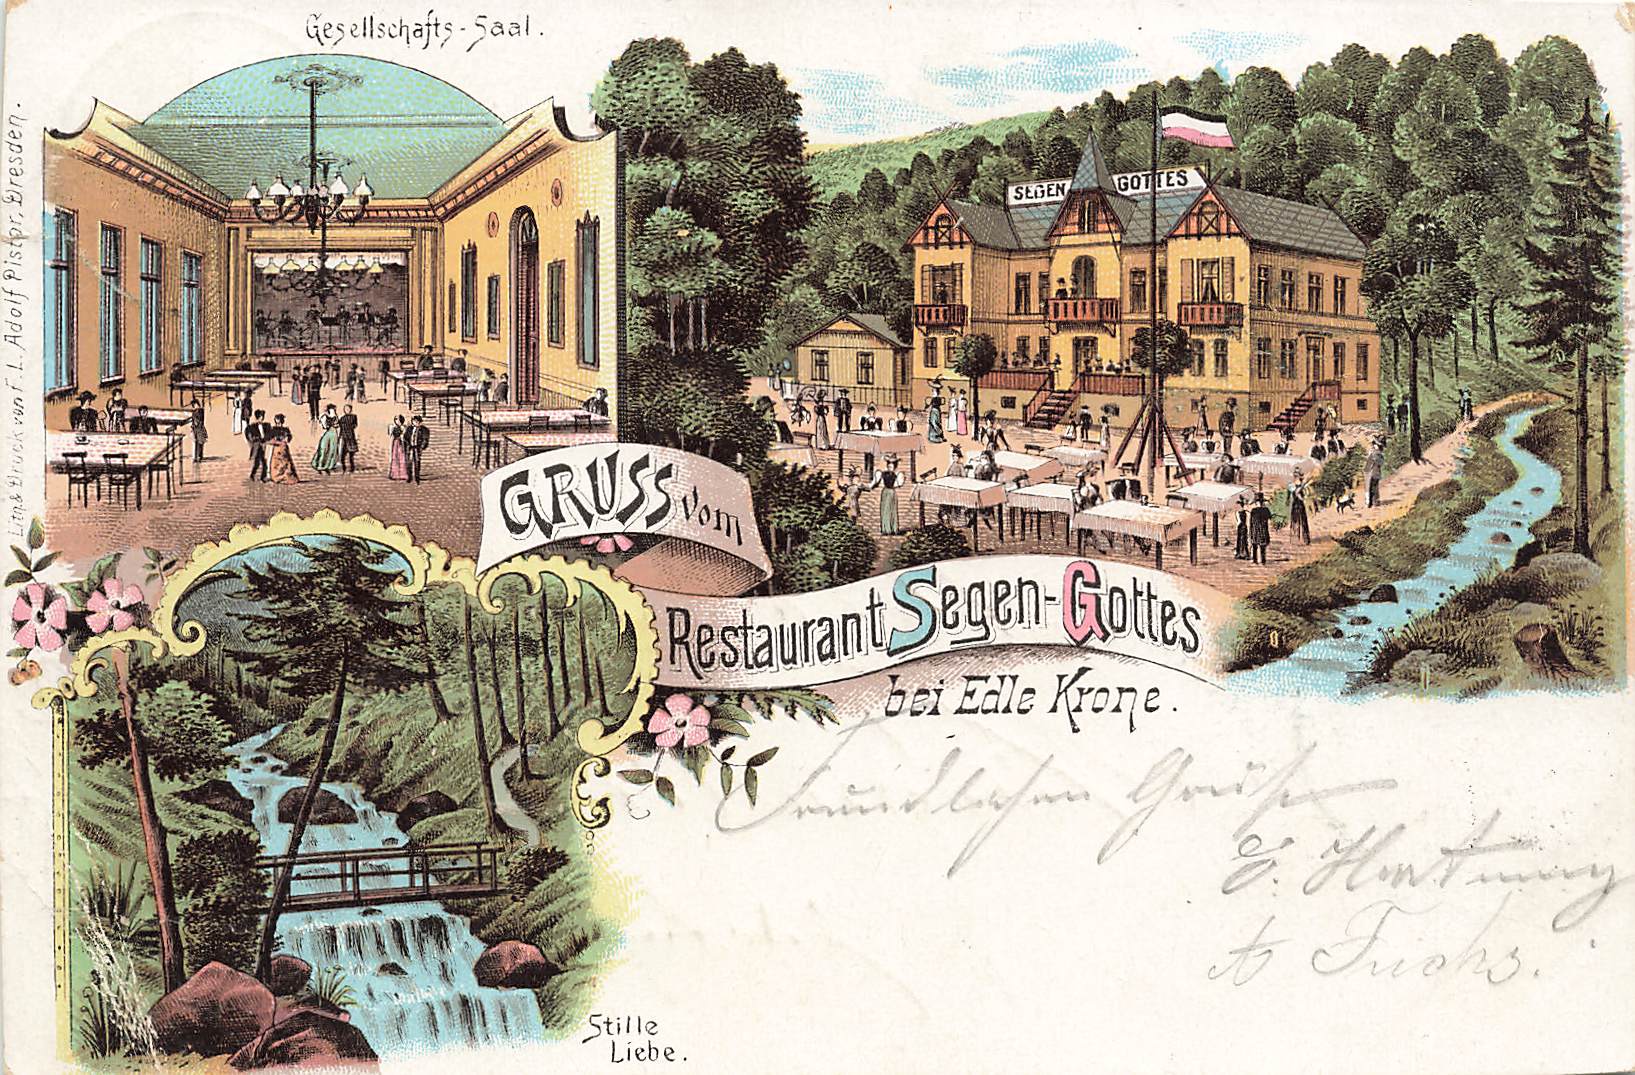 Gesellschafts-Saal.
Lith. & Druck von F. L. Adolf Pistor, Dresden.
SEGEN GOTTES
GRUSS vom
Restaurant Segen-Gottes
bei Edle Krone.
Freundlichen Gruß
E. Hartmany
A Fuchs.
Stille
Liebe.